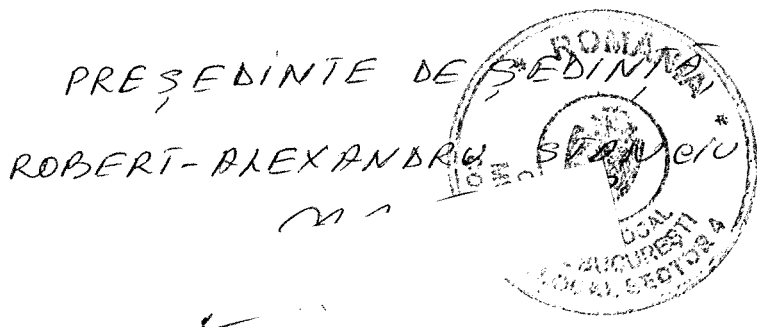 PREȘEDINTE DE ȘEDINȚĂ
ROBERT-ALEXANDRU STANCIU
* ROMÂNIA *
BUCUREȘTI
LOCAL SECTOR 4